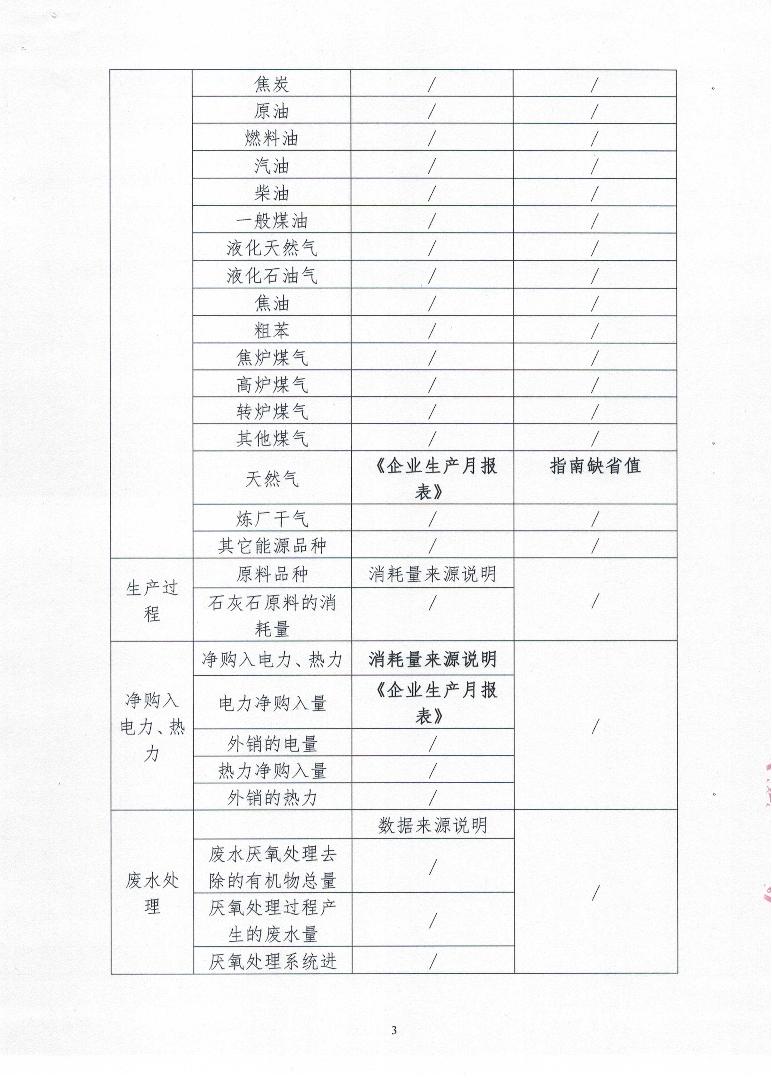 焦炭 / /
原油 / /
燃料油 / /
汽油 / /
柴油 / /
一般煤油 / /
液化天然气 / /
液化石油气 / /
焦油 / /
粗苯 / /
焦炉煤气 / /
高炉煤气 / /
转炉煤气 / /
其他煤气 / /
天然气 《企业生产月报 指南缺省值
表》
炼厂干气 / /
其它能源品种 / /
生产过 原料品种 消耗量来源说明 /
程 石灰石原料的消 /
耗量
净购入 净购入电力、热力 消耗量来源说明 /
电力、热 电力净购入量 《企业生产月报
力 表》
外销的电量 /
热力净购入量 /
外销的热力 /
废水处 数据来源说明 /
理 废水厌氧处理去 /
除的有机物总量
厌氧处理过程产 /
生的废水量
厌氧处理系统进 /
3